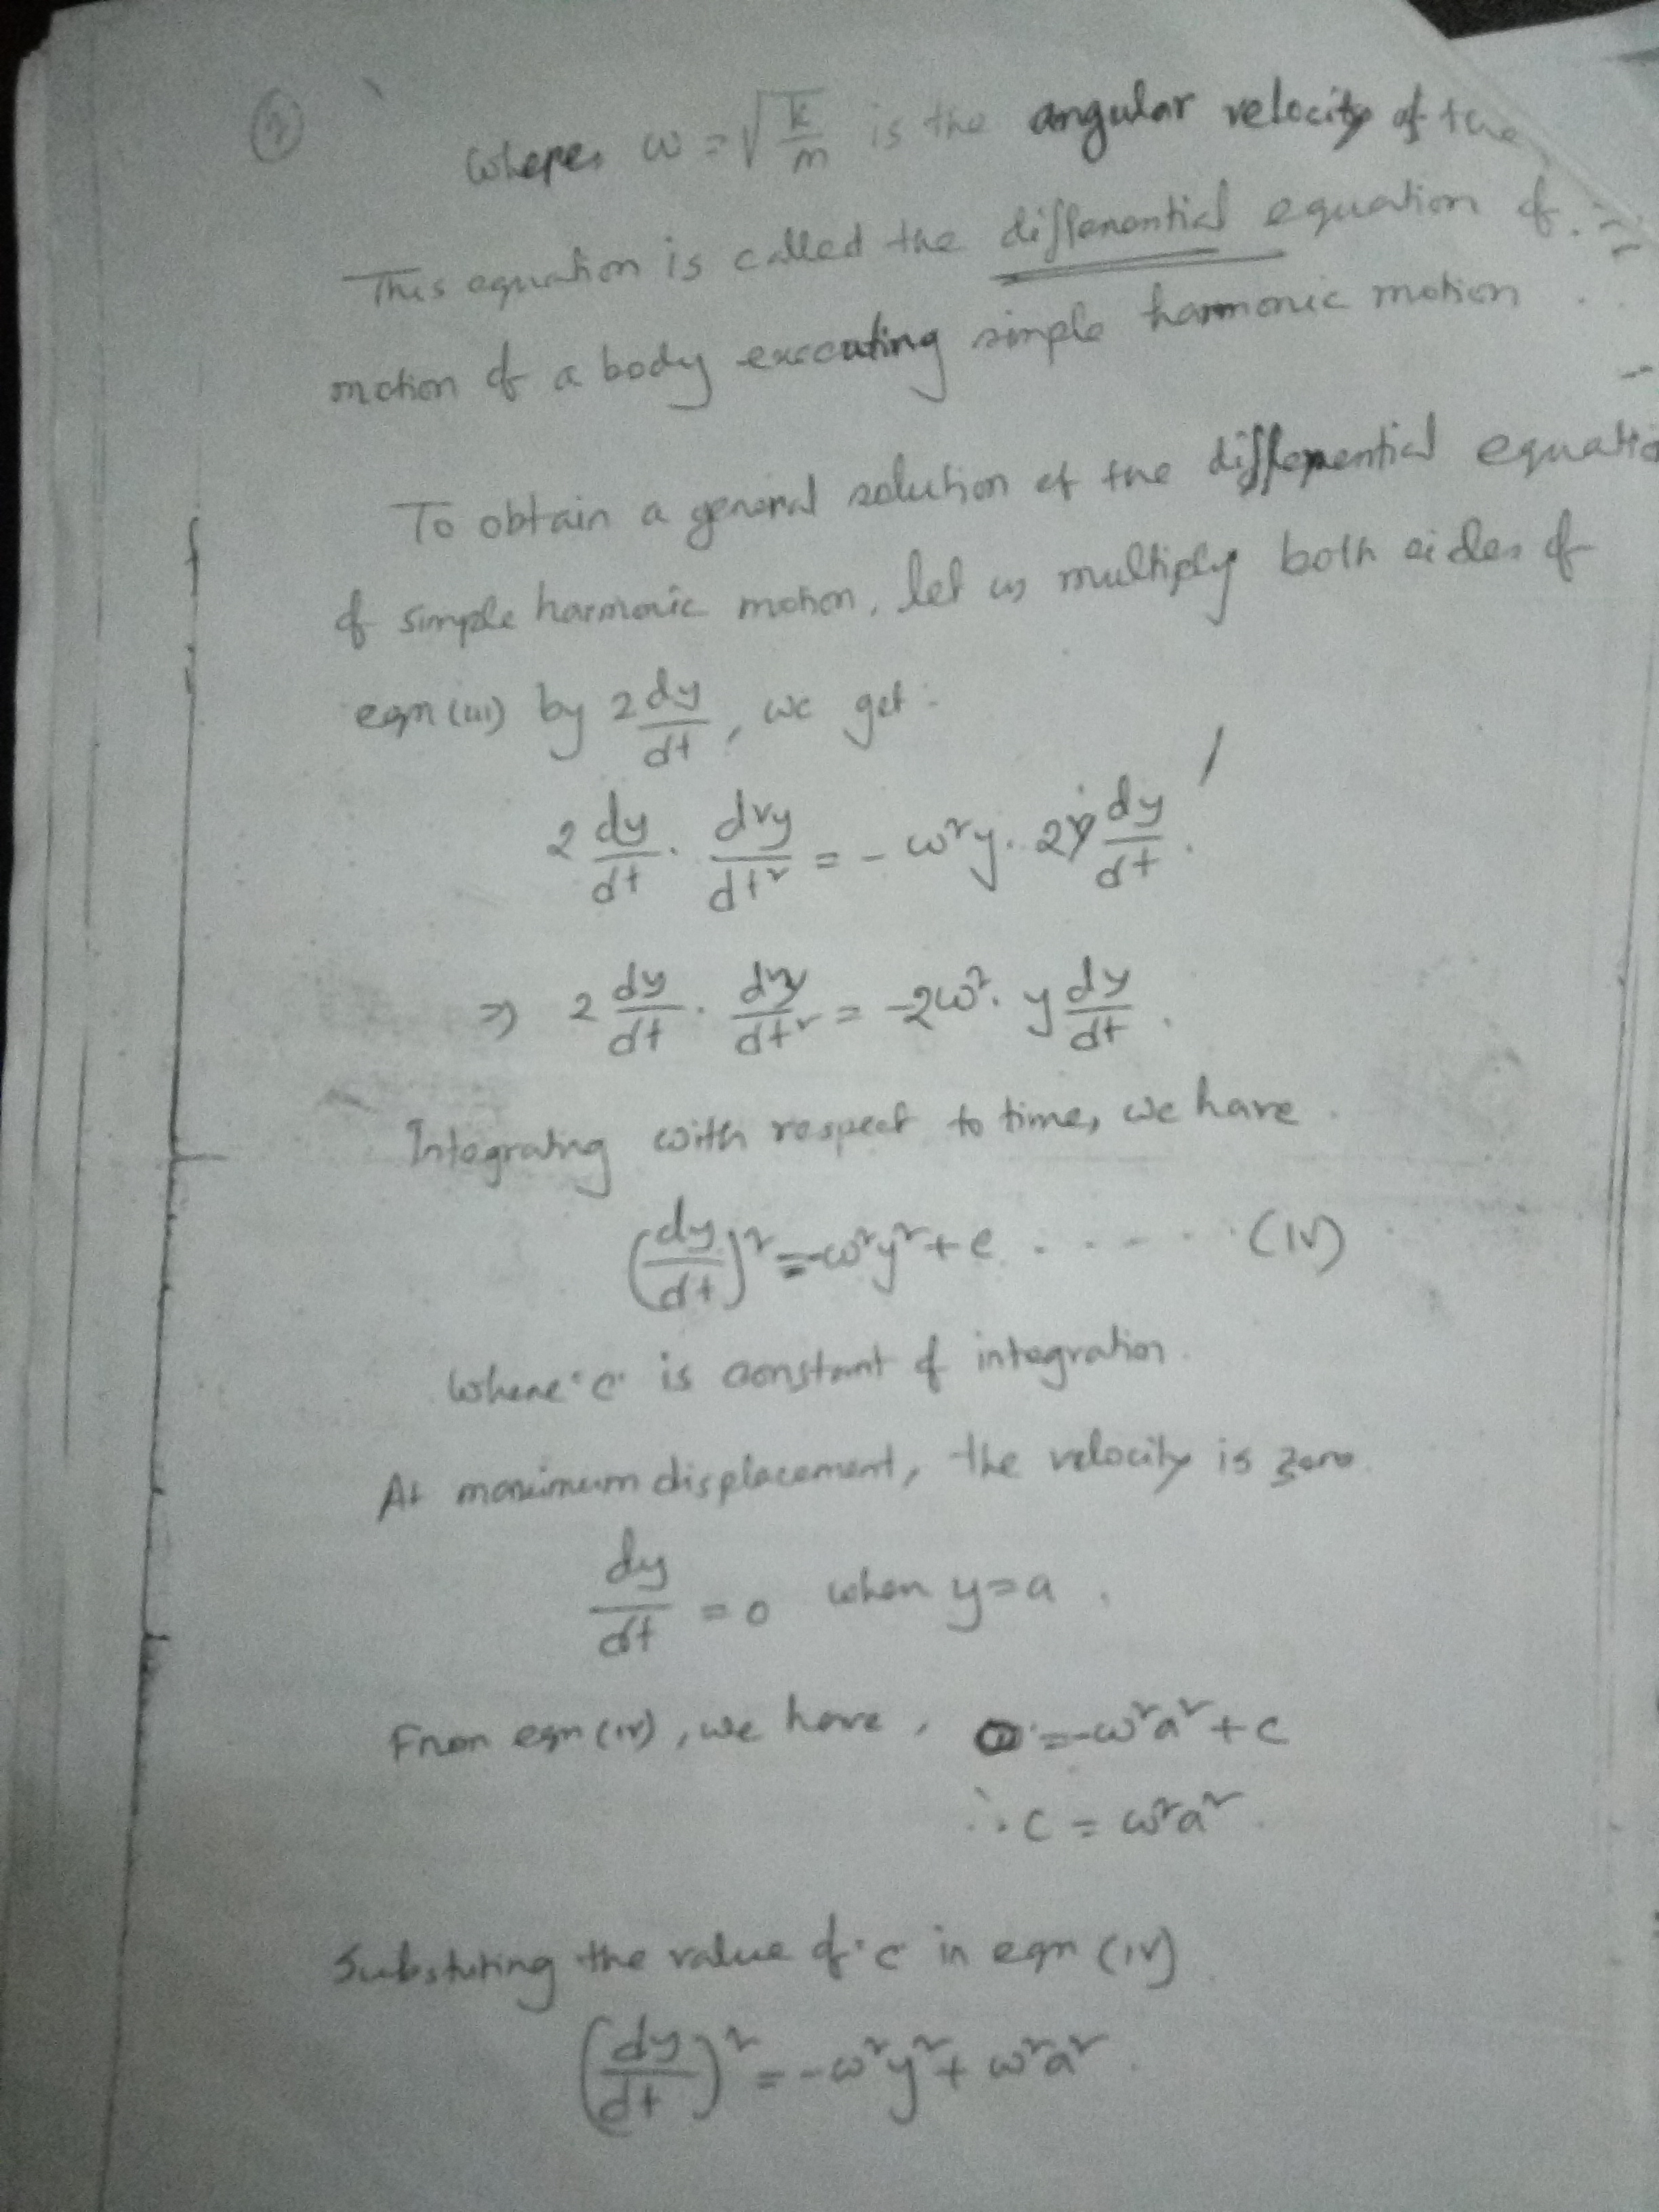 2
Where, ω = √(k/m) is the angular velocity of the
This equation is called the differential equation of
motion of a body executing simple harmonic motion
To obtain a general solution of the differential equatio
of simple harmonic motion, let us multiply both sides of
eqn (iii) by 2 dy/dt, we get:
2 dy/dt · d²y/dt² = - ω²y · 2 dy/dt.
⇒ 2 dy/dt · d²y/dt² = -2ω² · y dy/dt.
Integrating with respect to time, we have
(dy/dt)² = -ω²y² + c ...... (IV)
Where 'c' is constant of integration.
At maximum displacement, the velocity is zero.
dy/dt = 0 when y = a.
From eqn (iv), we have, 0 = -ω²a² + c
∴ c = ω²a².
Substuting the value of 'c' in eqn (iv)
(dy/dt)² = -ω²y² + ω²a².